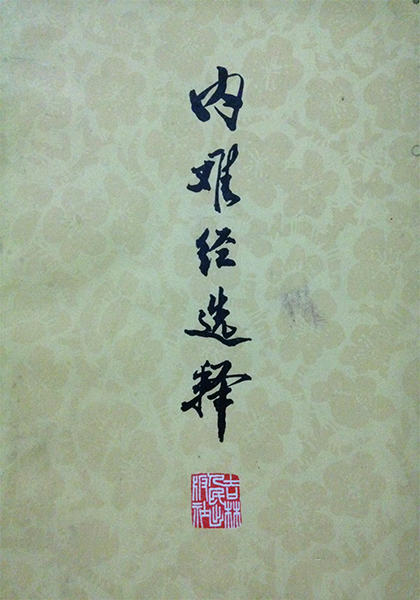 内难经选释
吉林
人民出
版社